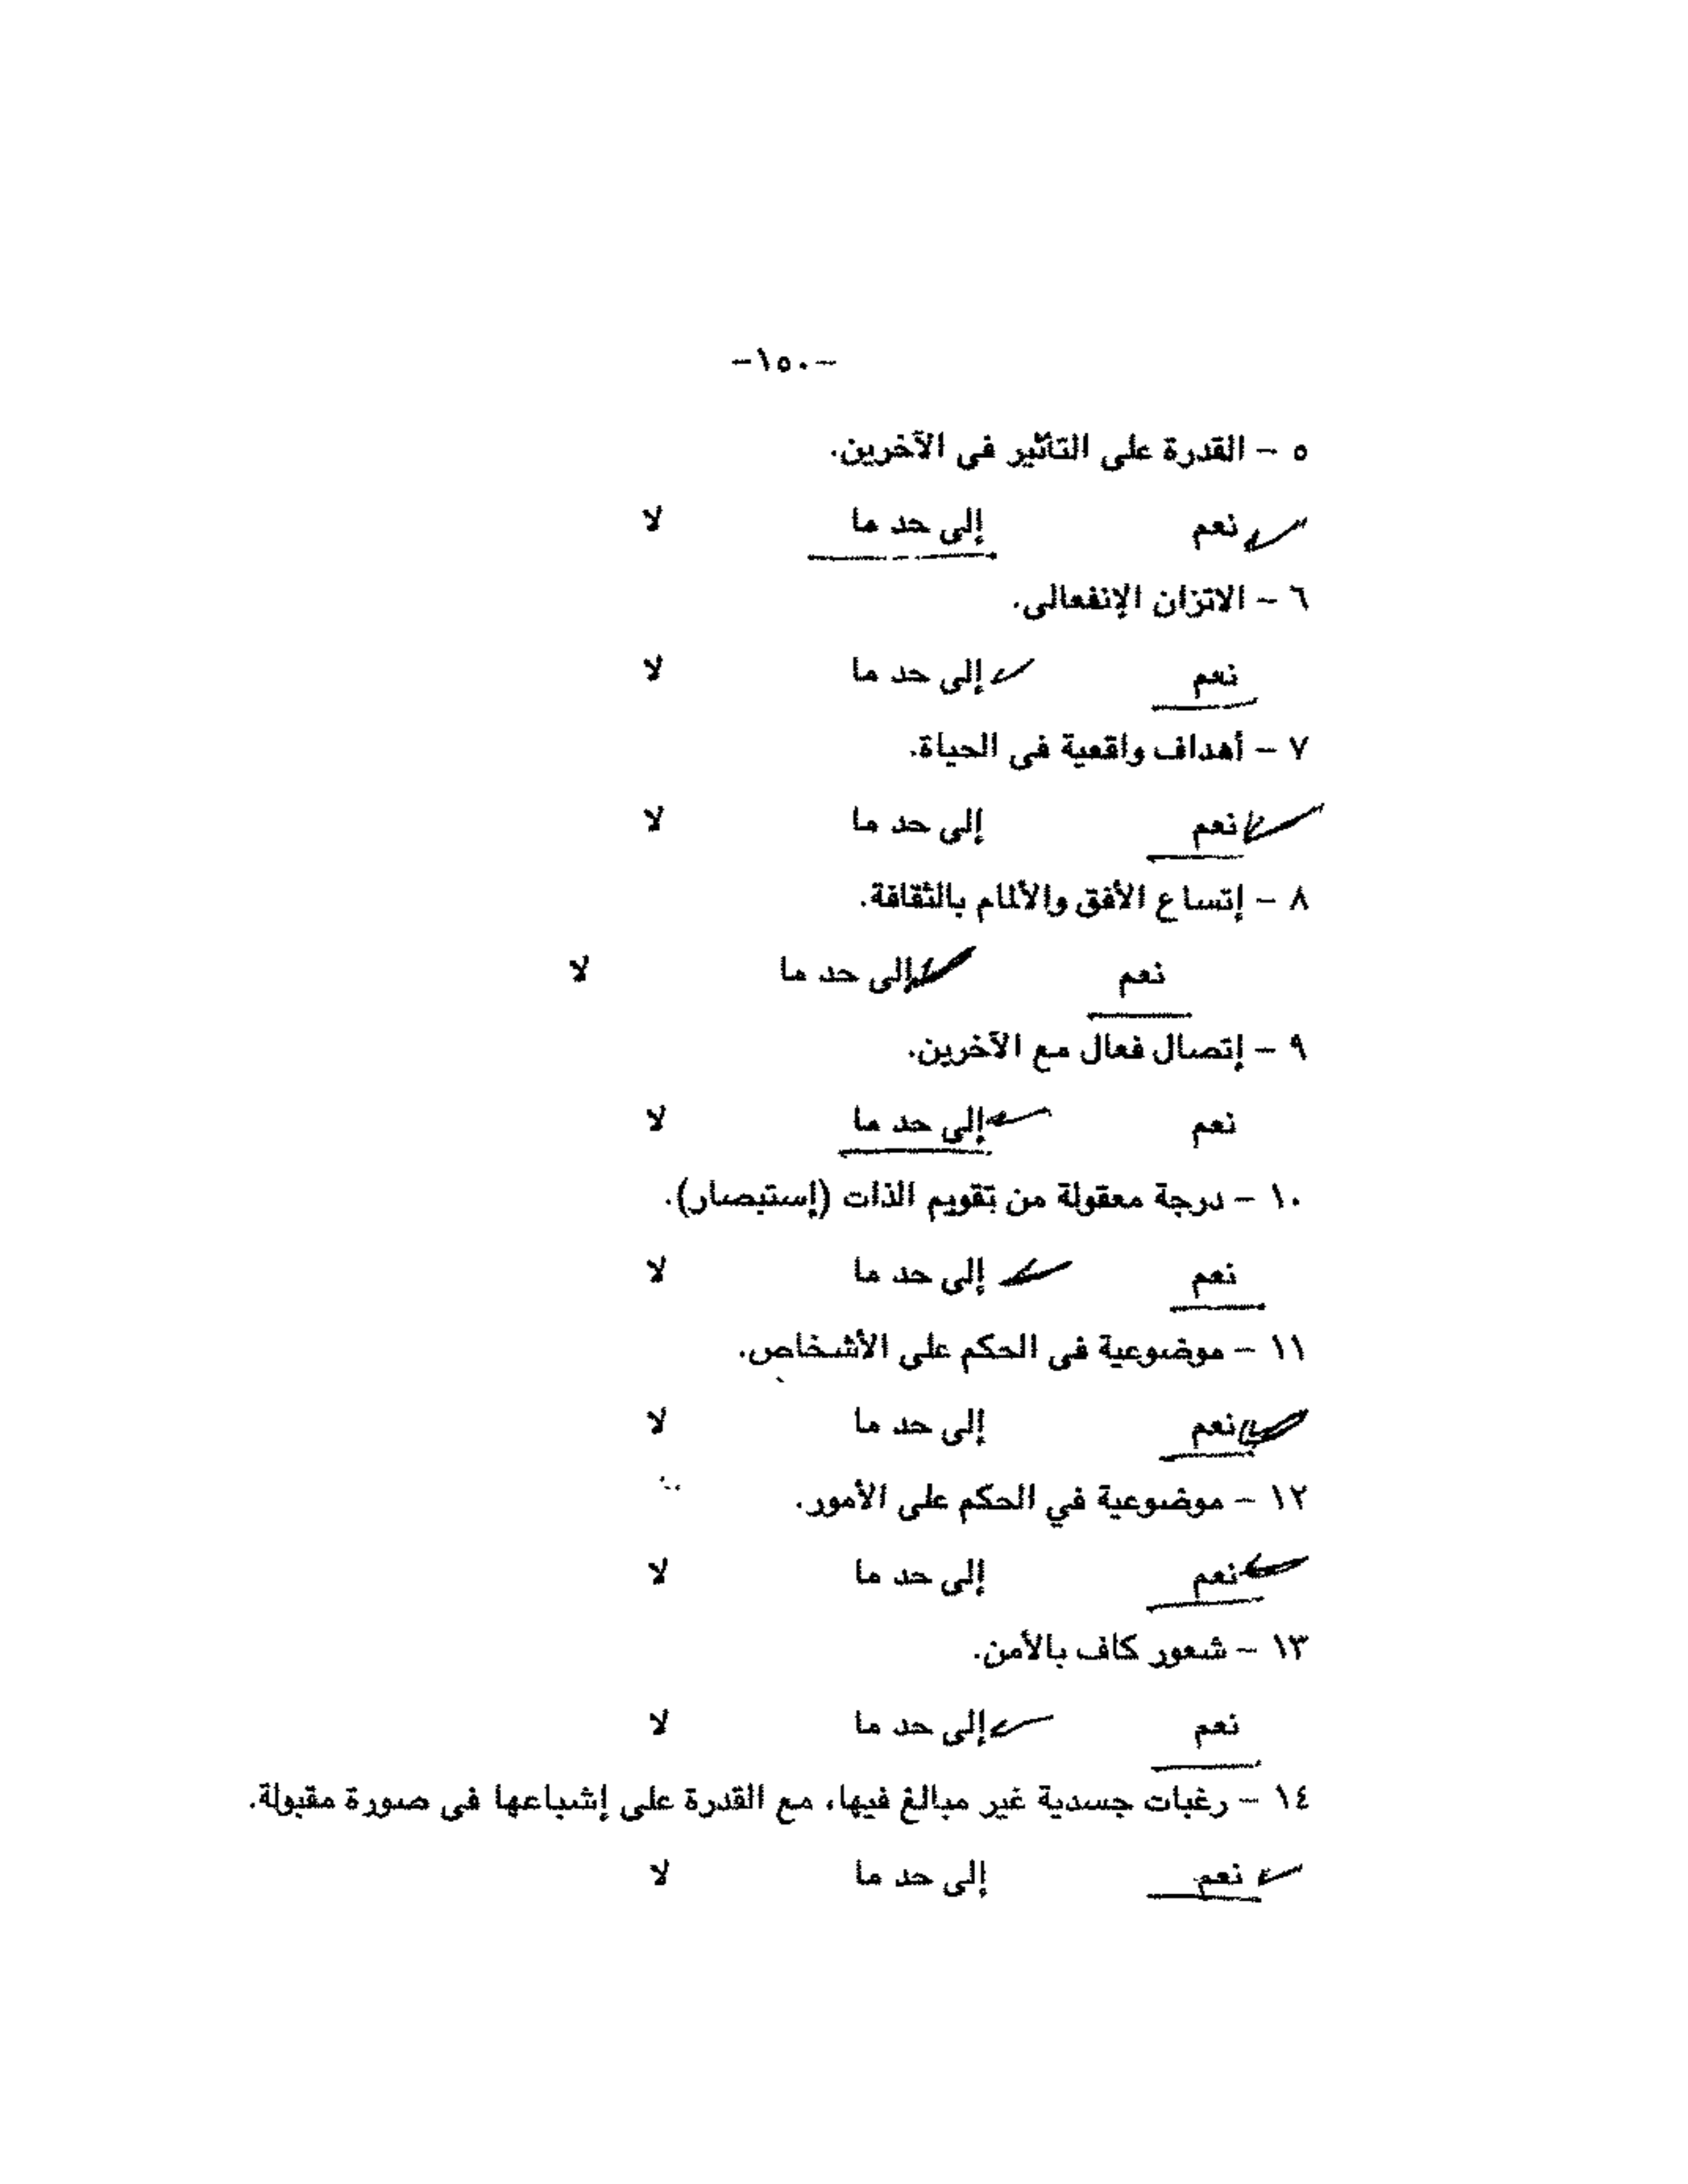 -١٥٠-
٥ - القدرة على التأثير فى الآخرين.
نعم إلى حد ما لا
٦ - الاتزان الإنفعالى.
نعم إلى حد ما لا
٧ - أهداف واقعية فى الحياة.
نعم إلى حد ما لا
٨ - إتساع الأفق والألمام بالثقافة.
نعم إلى حد ما لا
٩ - إتصال فعال مع الآخرين.
نعم إلى حد ما لا
١٠ - درجة معقولة من تقويم الذات (إستبصار).
نعم إلى حد ما لا
١١ - موضوعية فى الحكم على الأشخاص.
نعم إلى حد ما لا
١٢ - موضوعية في الحكم على الأمور.
نعم إلى حد ما لا
١٣ - شعور كاف بالأمن.
نعم إلى حد ما لا
١٤ - رغبات جسدية غير مبالغ فيها، مع القدرة على إشباعها فى صورة مقبولة.
نعم إلى حد ما لا